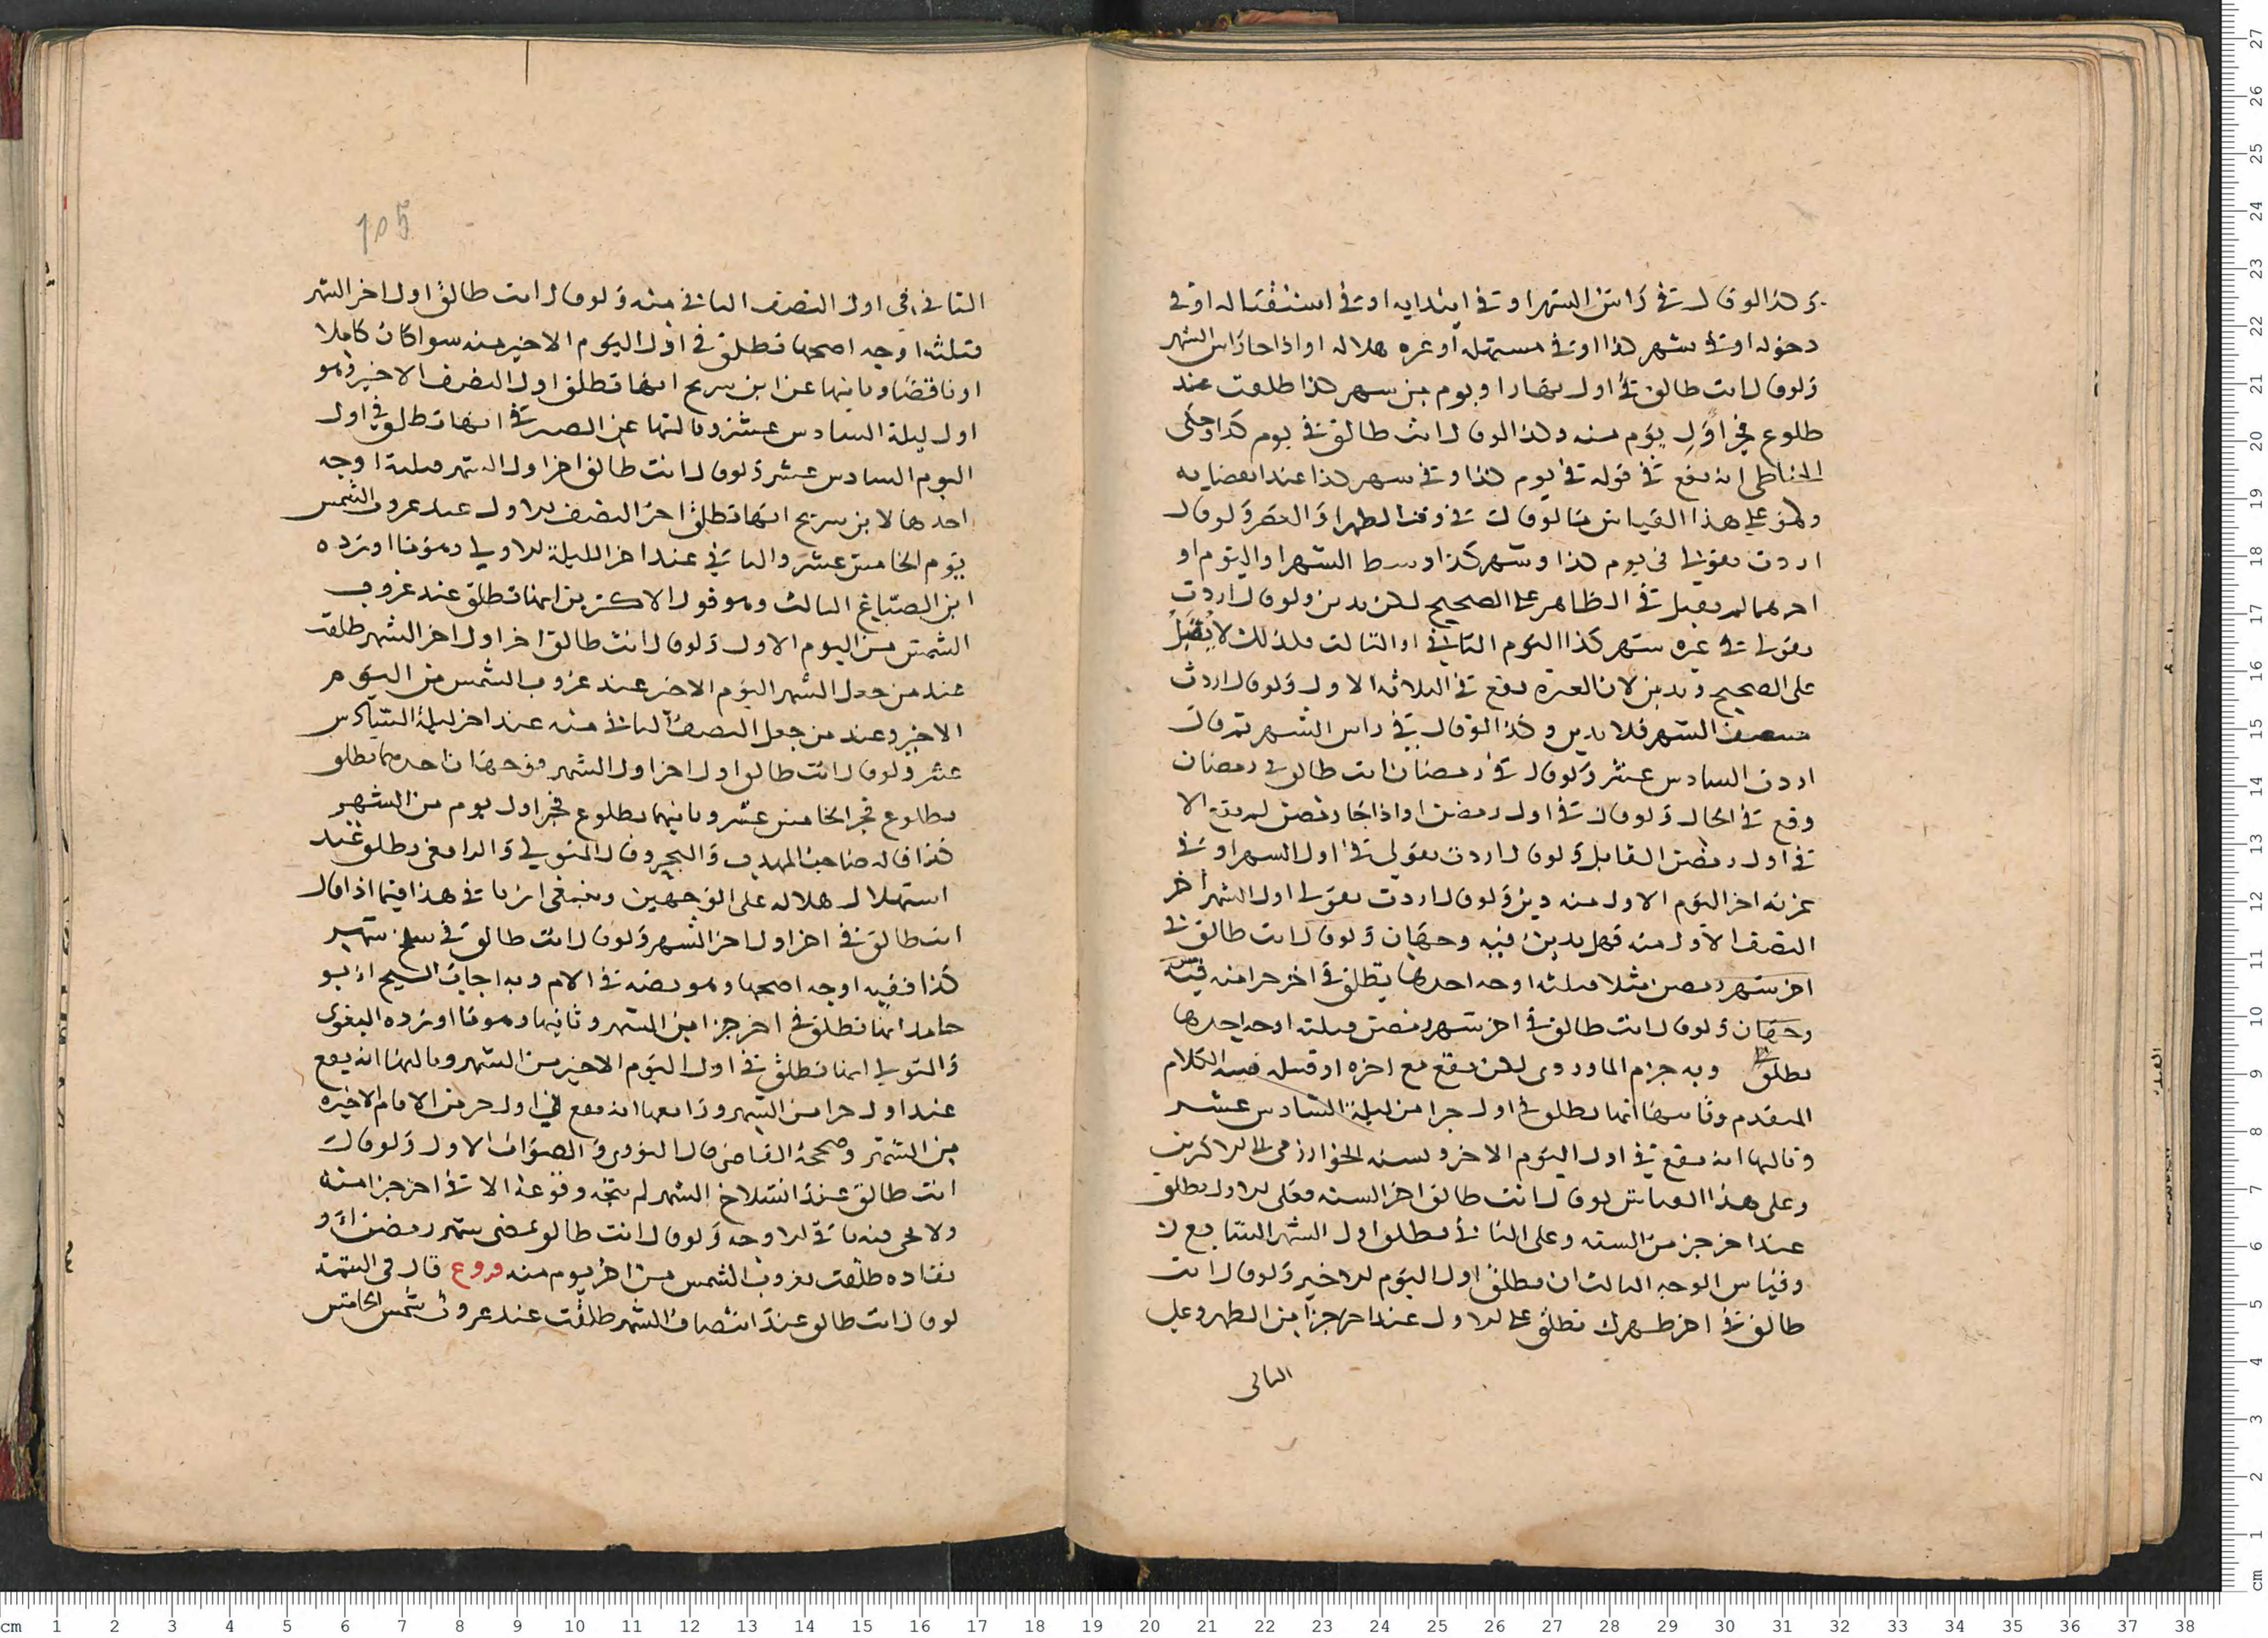 وكذا لو قال في راس الشهر او في ابتدايه او في استقباله او في
دخوله او في شهر كذا او في مستهله او غره هلاله او اذا جا راس الشهر
ولو قال انت طالق في اول نهار او يوم من شهر كذا طلقت عند
طلوع فجر اول يوم منه وكذا لو قال انت طالق في يوم كذا وحكى
الحناطي انه يقع في قوله في يوم كذا وفي شهر كذا عند انقضايه
وهو على هذا القياس فيما لو قال في وقت الظهر او العصر ولو قال
اردت بقولي في يوم كذا وشهر كذا وسط الشهر او اليوم او
اخرهما لم يقبل في الظاهر على الصحيح لكن يدين ولو قال اردت
بقولي في غره شهر كذا اليوم الثاني او الثالث فكذلك لا يقبل
على الصحيح ويدين لان الغرة تقع في الثلاثة الاول ولو قال اردت
منتصف الشهر فلا يدين وكذا لو قال في راس الشهر ثم قال
اردت السادس عشر ولو قال في رمضان انت طالق في رمضان
وقع في الحال ولو قال في اول رمضن او اذا جا رمضن لم يقع الا
في اول رمضن القابل ولو قال اردت بقولي في اول الشهر او في
غرته اخر اليوم الاول منه دين ولو قال اردت بقولي اول الشهر اخر
النصف الاول منه فهل يدين فيه وجهان ولو قال انت طالق في
اخر شهر رمضن مثلا فثلثه اوجه احدها يطلق في اخر جزا منه فيه
وجهان ولو قال انت طالق في اخر شهر رمضن فثلثه اوجه احدها
تطلق وبه جزم الماوردي لكن يقع مع اخره او قبله فيه الكلام
المتقدم وثانيها انها تطلق في اول جزا من ليلة السادس عشر
وثالثها انه يقع في اول اليوم الاخر ونسبه الخوارزمي الى الاكثرين
وعلى هذا القياس لو قال انت طالق اخر السنه فعلى الاول يطلق
عند اخر جز من السنه وعلى الثاني تطلق اول الشهر السابع
وقياس الوجه الثالث ان تطلق اول اليوم الاخير ولو قال انت
طالق في اخر طهرك تطلق على الاول عند اخر جزا من الطهر وعلى
الثاني
105
الثاني في اول النصف الثاني منه ولو قال انت طالق اول اخر الشهر
فثلثه اوجه اصحها تطلق في اول اليوم الاخير منه سوا كان كاملا
او ناقصا وثانيها عن ابن سريج انها تطلق اول النصف الاخير وهو
اول ليلة السادس عشر وثالثها عن الصيرفي انها تطلق في اول
اليوم السادس عشر ولو قال انت طالق اخر اول الشهر فثلثة اوجه
احدها لابن سريج انها تطلق اخر النصف الاول عند غروب الشمس
يوم الخامس عشر والثاني عند اخر الليلة الاولى وهو ما اورده
ابن الصباغ الثالث وهو قول الاكثرين انها تطلق عند غروب
الشمس من اليوم الاول ولو قال انت طالق اخر اول اخر الشهر طلقت
عند من جعل الشهر اليوم الاخر عند غروب الشمس من اليوم
الاخير وعند من جعل النصف الثاني منه عند اخر ليلة السادس
عشر ولو قال انت طالق اول اخر اول الشهر فوجهان احدهما تطلق
بطلوع فجر الخامس عشر وثانيهما بطلوع فجر اول يوم من الشهر
كذا قاله صاحب المهذب والبحر وقال المتولي والرافعي تطلق عند
استهلال هلاله على الوجهين وينبغي اثرنا في هذا فيما اذا قال
انت طالق في اخر اول اخر الشهر ولو قال انت طالق في سلخ شهر
كذا ففيه اوجه اصحها وهو نصه في الام وبه اجاب الشيخ ابو
حامد انها تطلق في اخر جزا من الشهر وثانيها وهو ما اورده البغوي
والمتولي انها تطلق في اول اليوم الاخير من الشهر وثالثها انه يقع
عند اول جزا من الشهر ورابعها انه يقع في اول جز من الايام الاخيره
من الشهر وصححه القاضي قال النووي والصواب الاول ولو قال
انت طالق عند انسلاخ الشهر لم يتجه وقوعه الا في اخر جزا منه
ولا يجي فيه باقي الاوجه ولو قال انت طالق بمضي شهر رمضن او
نفاده طلقت بغروب الشمس من اخر يوم منه فروع قال في التتمة
لو قال انت طالق عند انتصاف الشهر طلقت عند غروب شمس الخامس